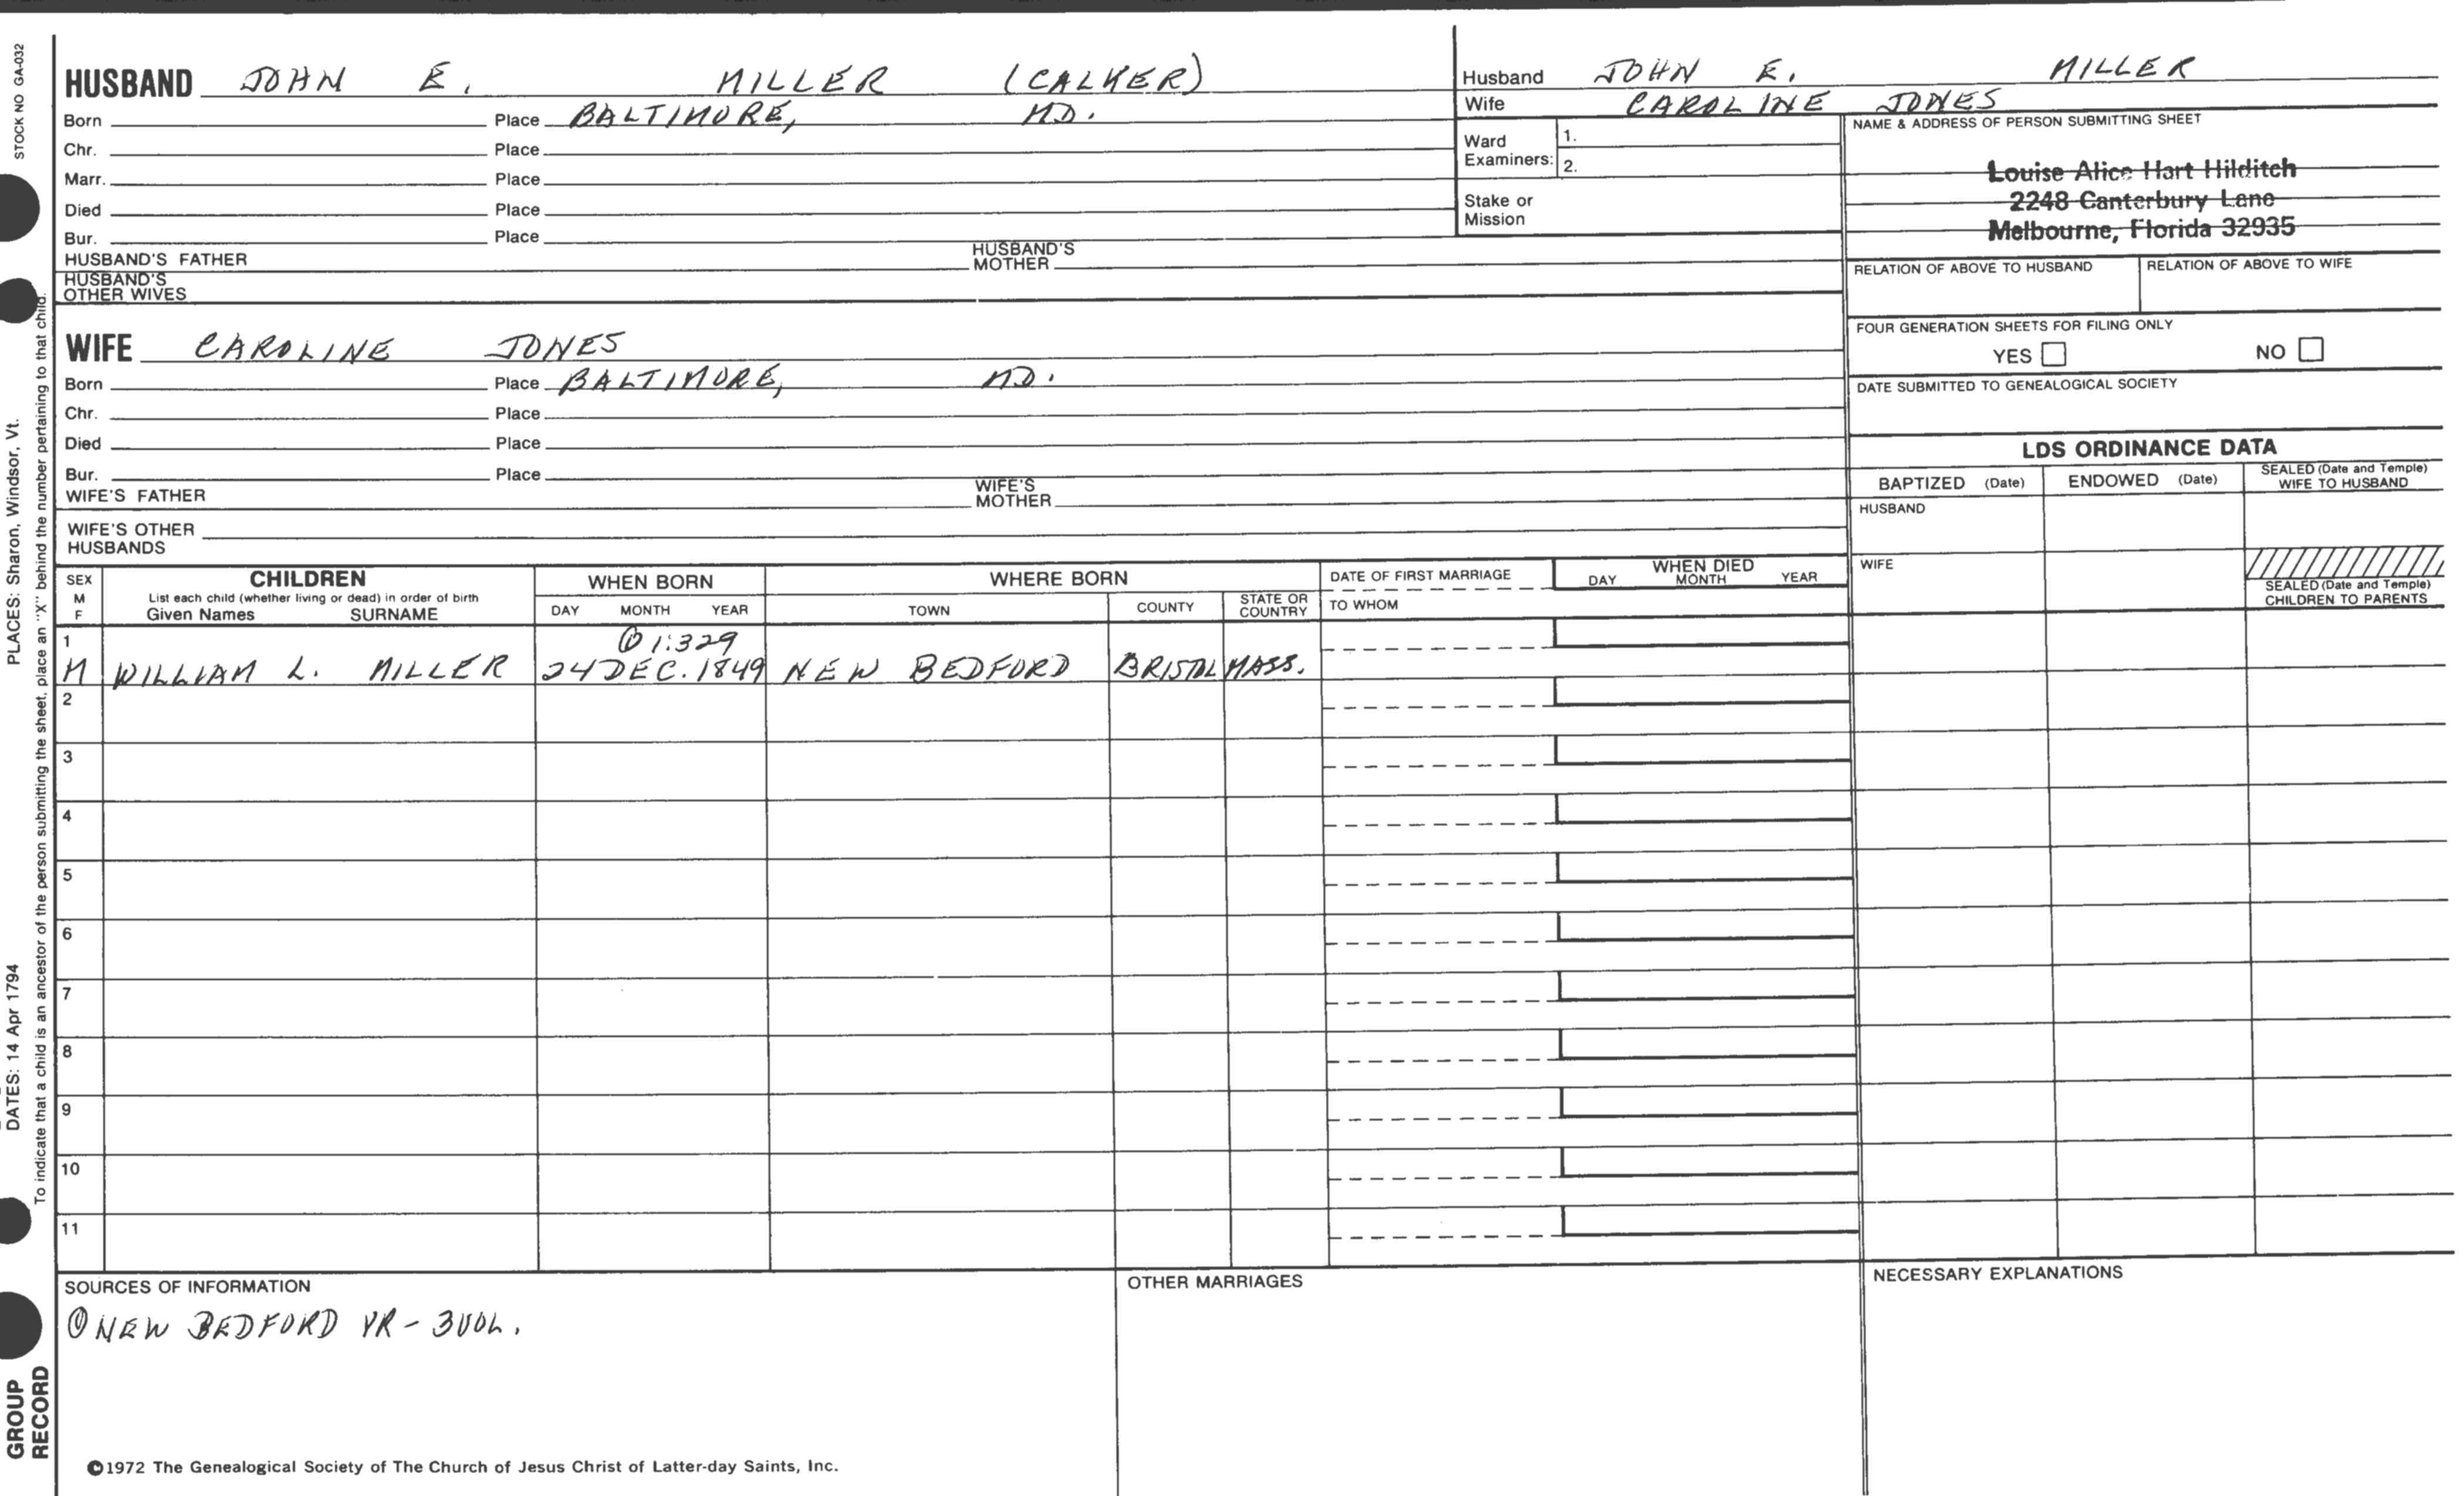 STOCK NO GA-032
PLACES: Sharon, Windsor, Vt.
DATES: 14 Apr 1794
To indicate that a child is an ancestor of the person submitting the sheet, place an "X" behind the number pertaining to that child.
GROUP
RECORD
HUSBAND JOHN E. MILLER (CALKER)
Born Place BALTIMORE, MD.
Chr. Place
Marr. Place
Died Place
Bur. Place
HUSBAND'S FATHER HUSBAND'S MOTHER
HUSBAND'S
OTHER WIVES
WIFE CAROLINE JONES
Born Place BALTIMORE, MD.
Chr. Place
Died Place
Bur. Place
WIFE'S FATHER WIFE'S MOTHER
WIFE'S OTHER
HUSBANDS
Husband JOHN E. MILLER
Wife CAROLINE JONES
Ward
Examiners: 1.
2.
Stake or
Mission
NAME & ADDRESS OF PERSON SUBMITTING SHEET
Louise Alice Hart Hilditch
2248 Canterbury Lane
Melbourne, Florida 32935
RELATION OF ABOVE TO HUSBAND RELATION OF ABOVE TO WIFE
FOUR GENERATION SHEETS FOR FILING ONLY
YES NO
DATE SUBMITTED TO GENEALOGICAL SOCIETY
LDS ORDINANCE DATA
BAPTIZED (Date) ENDOWED (Date) SEALED (Date and Temple) WIFE TO HUSBAND
HUSBAND
WIFE
SEALED (Date and Temple)
CHILDREN TO PARENTS
SEX
M
F
CHILDREN
List each child (whether living or dead) in order of birth
Given Names SURNAME
WHEN BORN
DAY MONTH YEAR
WHERE BORN
TOWN COUNTY STATE OR COUNTRY
DATE OF FIRST MARRIAGE
TO WHOM
WHEN DIED
DAY MONTH YEAR
1 ① 1:329
M WILLIAM L. MILLER 24 DEC. 1849 NEW BEDFORD BRISTOL MASS.
2
3
4
5
6
7
8
9
10
11
SOURCES OF INFORMATION
① NEW BEDFORD VR - 3VOL.
OTHER MARRIAGES
NECESSARY EXPLANATIONS
©1972 The Genealogical Society of The Church of Jesus Christ of Latter-day Saints, Inc.